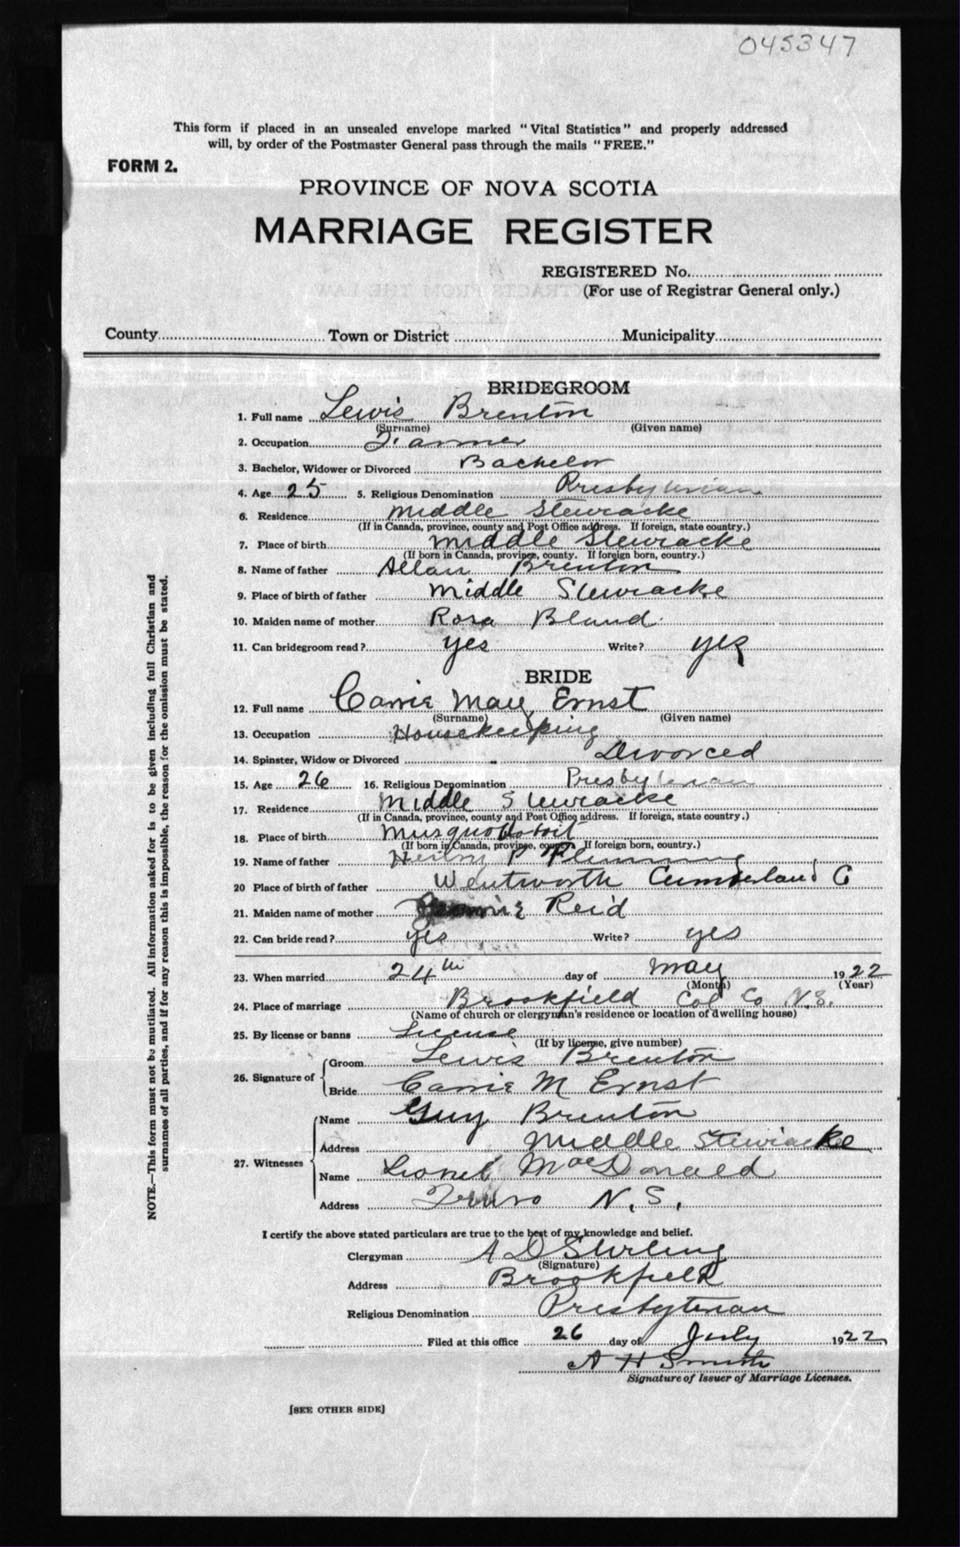 045347
This form if placed in an unsealed envelope marked "Vital Statistics" and properly addressed
will, by order of the Postmaster General pass through the mails "FREE."
FORM 2.
PROVINCE OF NOVA SCOTIA
MARRIAGE REGISTER
REGISTERED No.
(For use of Registrar General only.)
County Town or District Municipality
BRIDEGROOM
1. Full name Lewis Brenton
(Surname) (Given name)
2. Occupation Farmer
3. Bachelor, Widower or Divorced Bachelor
4. Age 25 5. Religious Denomination Presbyterian
6. Residence Middle Stewiacke
(If in Canada, province, county and Post Office address. If foreign, state country.)
7. Place of birth Middle Stewiacke
(If born in Canada, province, county. If foreign born, country.)
8. Name of father Allan Brenton
9. Place of birth of father Middle Stewiacke
10. Maiden name of mother Rosa Bland
11. Can bridegroom read? yes Write? yes
BRIDE
12. Full name Carrie May Ernst
(Surname) (Given name)
13. Occupation Housekeeping
14. Spinster, Widow or Divorced Divorced
15. Age 26 16. Religious Denomination Presbyterian
17. Residence Middle Stewiacke
(If in Canada, province, county and Post Office address. If foreign, state country.)
18. Place of birth Musquodoboit
(If born in Canada, province, county. If foreign born, country.)
19. Name of father P Flemming
20 Place of birth of father Wentworth Cumberland C
21. Maiden name of mother Reid
22. Can bride read? yes Write? yes
23. When married 24th day of May 1922
(Month) (Year)
24. Place of marriage Brookfield Col Co N.S.
(Name of church or clergyman's residence or location of dwelling house)
25. By license or banns License
(If by license, give number)
26. Signature of Groom Lewis Brenton
Bride Carrie M Ernst
27. Witnesses Name Guy Brenton
Address Middle Stewiacke
Name Lionel MacDonald
Address Truro N.S.
I certify the above stated particulars are true to the best of my knowledge and belief.
Clergyman A D Stirling
(Signature)
Address Brookfield
Religious Denomination Presbyterian
Filed at this office 26 day of July 1922
A H Smith
Signature of Issuer of Marriage Licenses.
[SEE OTHER SIDE]
NOTE.—This form must not be mutilated. All information asked for is to be given including full Christian and
surnames of all parties, and if for any reason this is impossible, the reason for the omission must be stated.